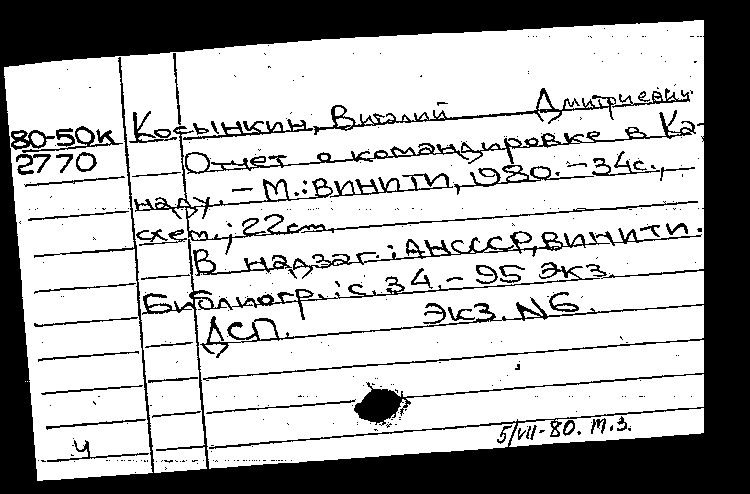 80-50к Косынкин, Виталий Дмитриевич
2770 Отчет о командировке в Ка-
наду. - М.: ВИНИТИ, 1980. - 34с.,
схем.; 22см.
В надзаг.: АНСССР, ВИНИТИ.
Библиогр.: с. 34. - 95 экз.
ДСП. Экз. N6.
Ч 5/VII-80. т.з.